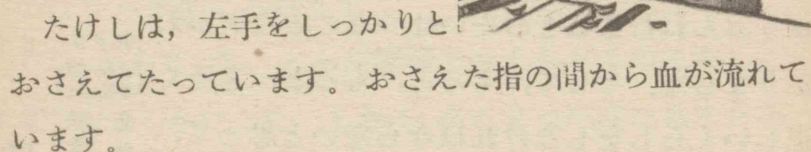 たけしは，左手をしっかりと
おさえてたっています。おさえた指の間から血が流れて
います。